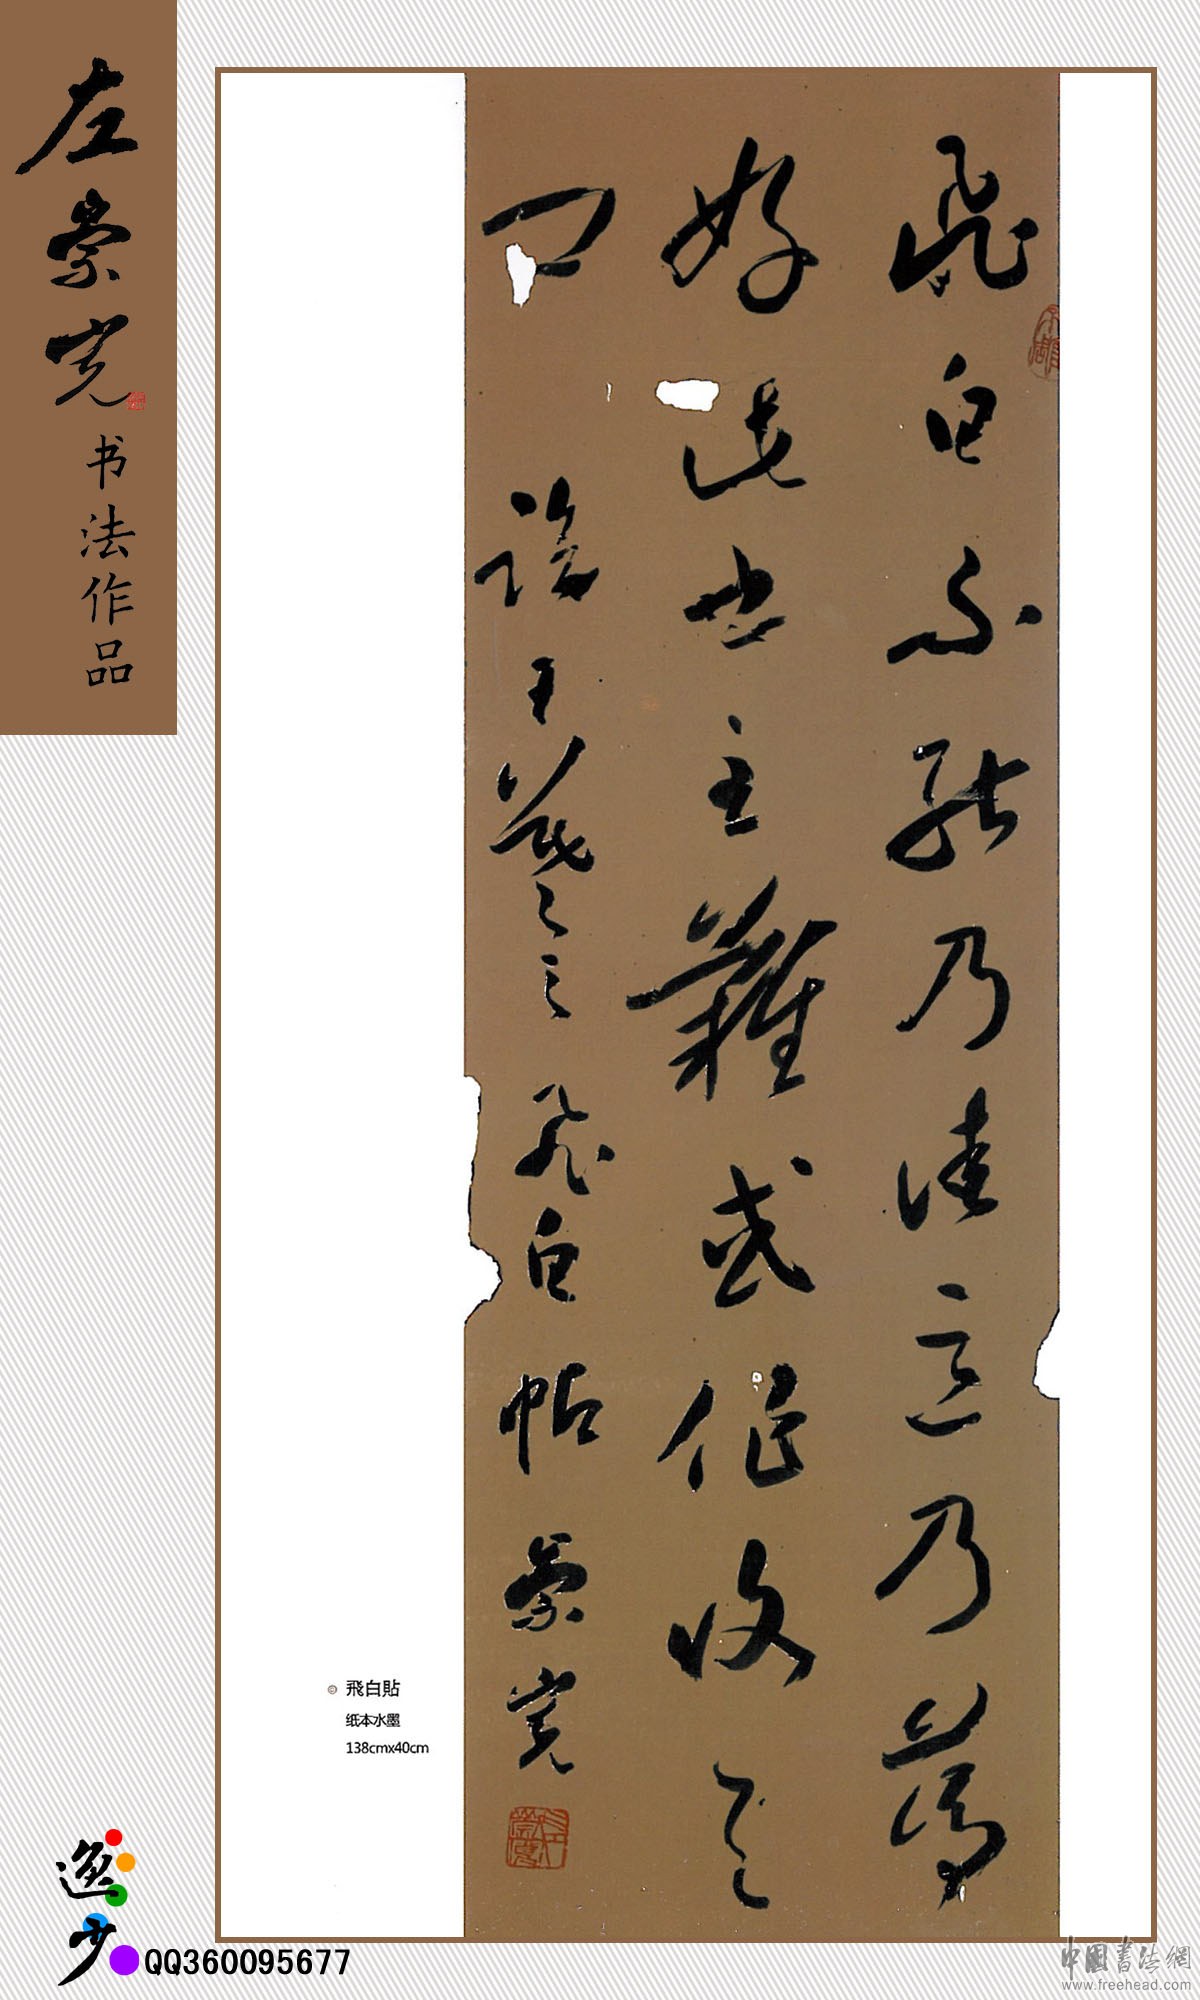 左崇寛
书法作品
飛白不能乃佳意乃篤
好此也主難或作收之
耳
臨王羲之飛白帖 崇寛
飛白貼
纸本水墨
138cmx40cm
逸少
QQ360095677
中國書法網
www.freehead.com